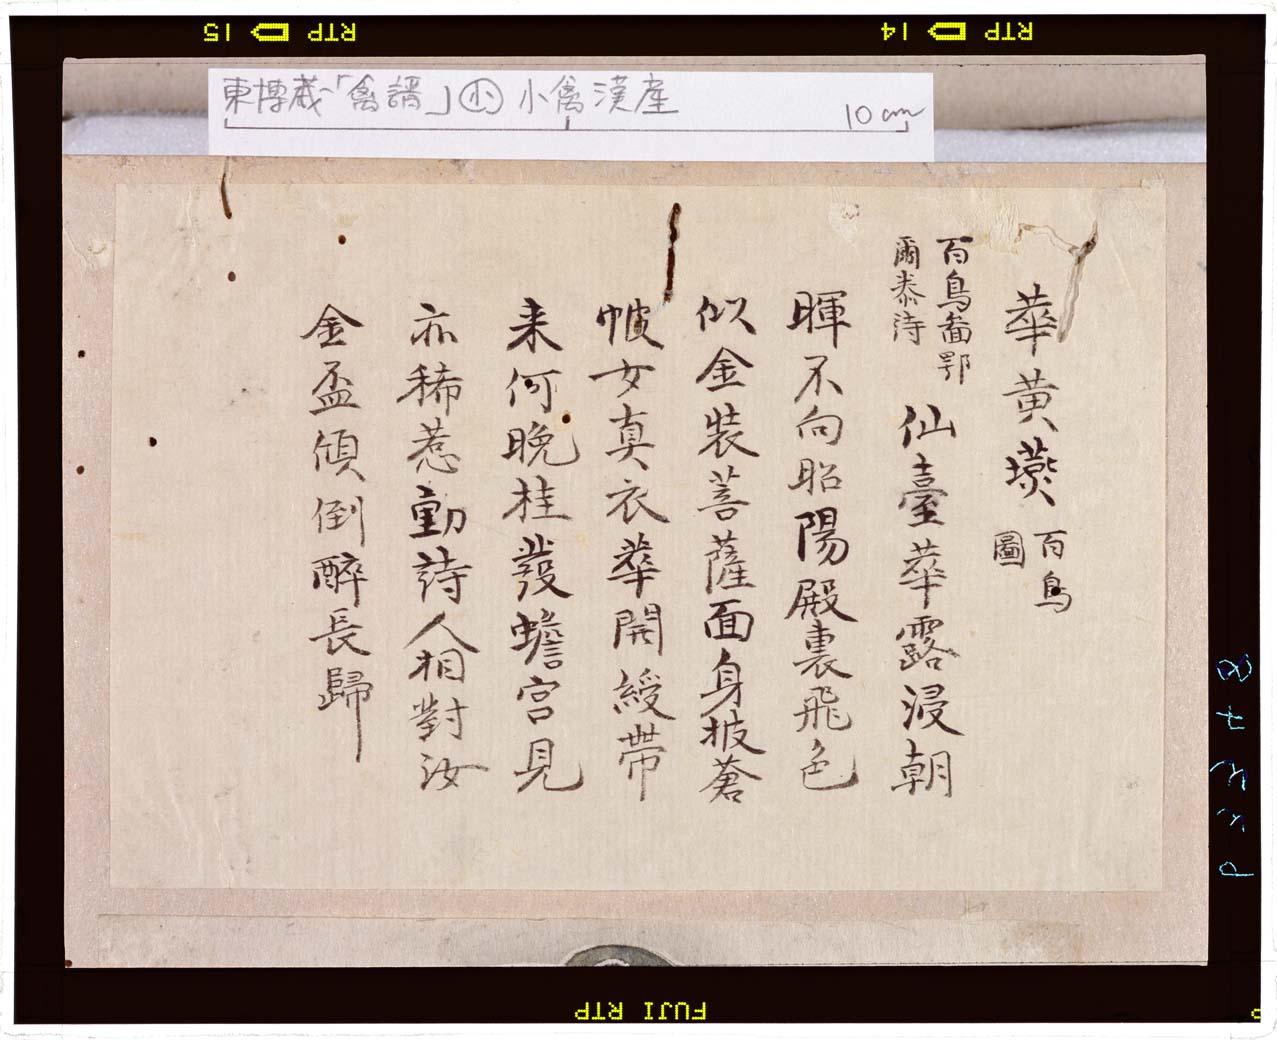 RTP 15
RTP 14
東博蔵「禽譜」㊙ 小禽漢産
10cm
華黄鷰 百鳥
圖
百鳥啚鄂
爾泰诗
仙臺華露浸朝
暉不向昭陽殿裏飛色
似金裝菩薩面身披蒼
帔女真衣華開綬帶
来何晩桂發蟾宮見
亦稀惹動詩人相對汝
金盃傾倒醉長歸
FUJI RTP